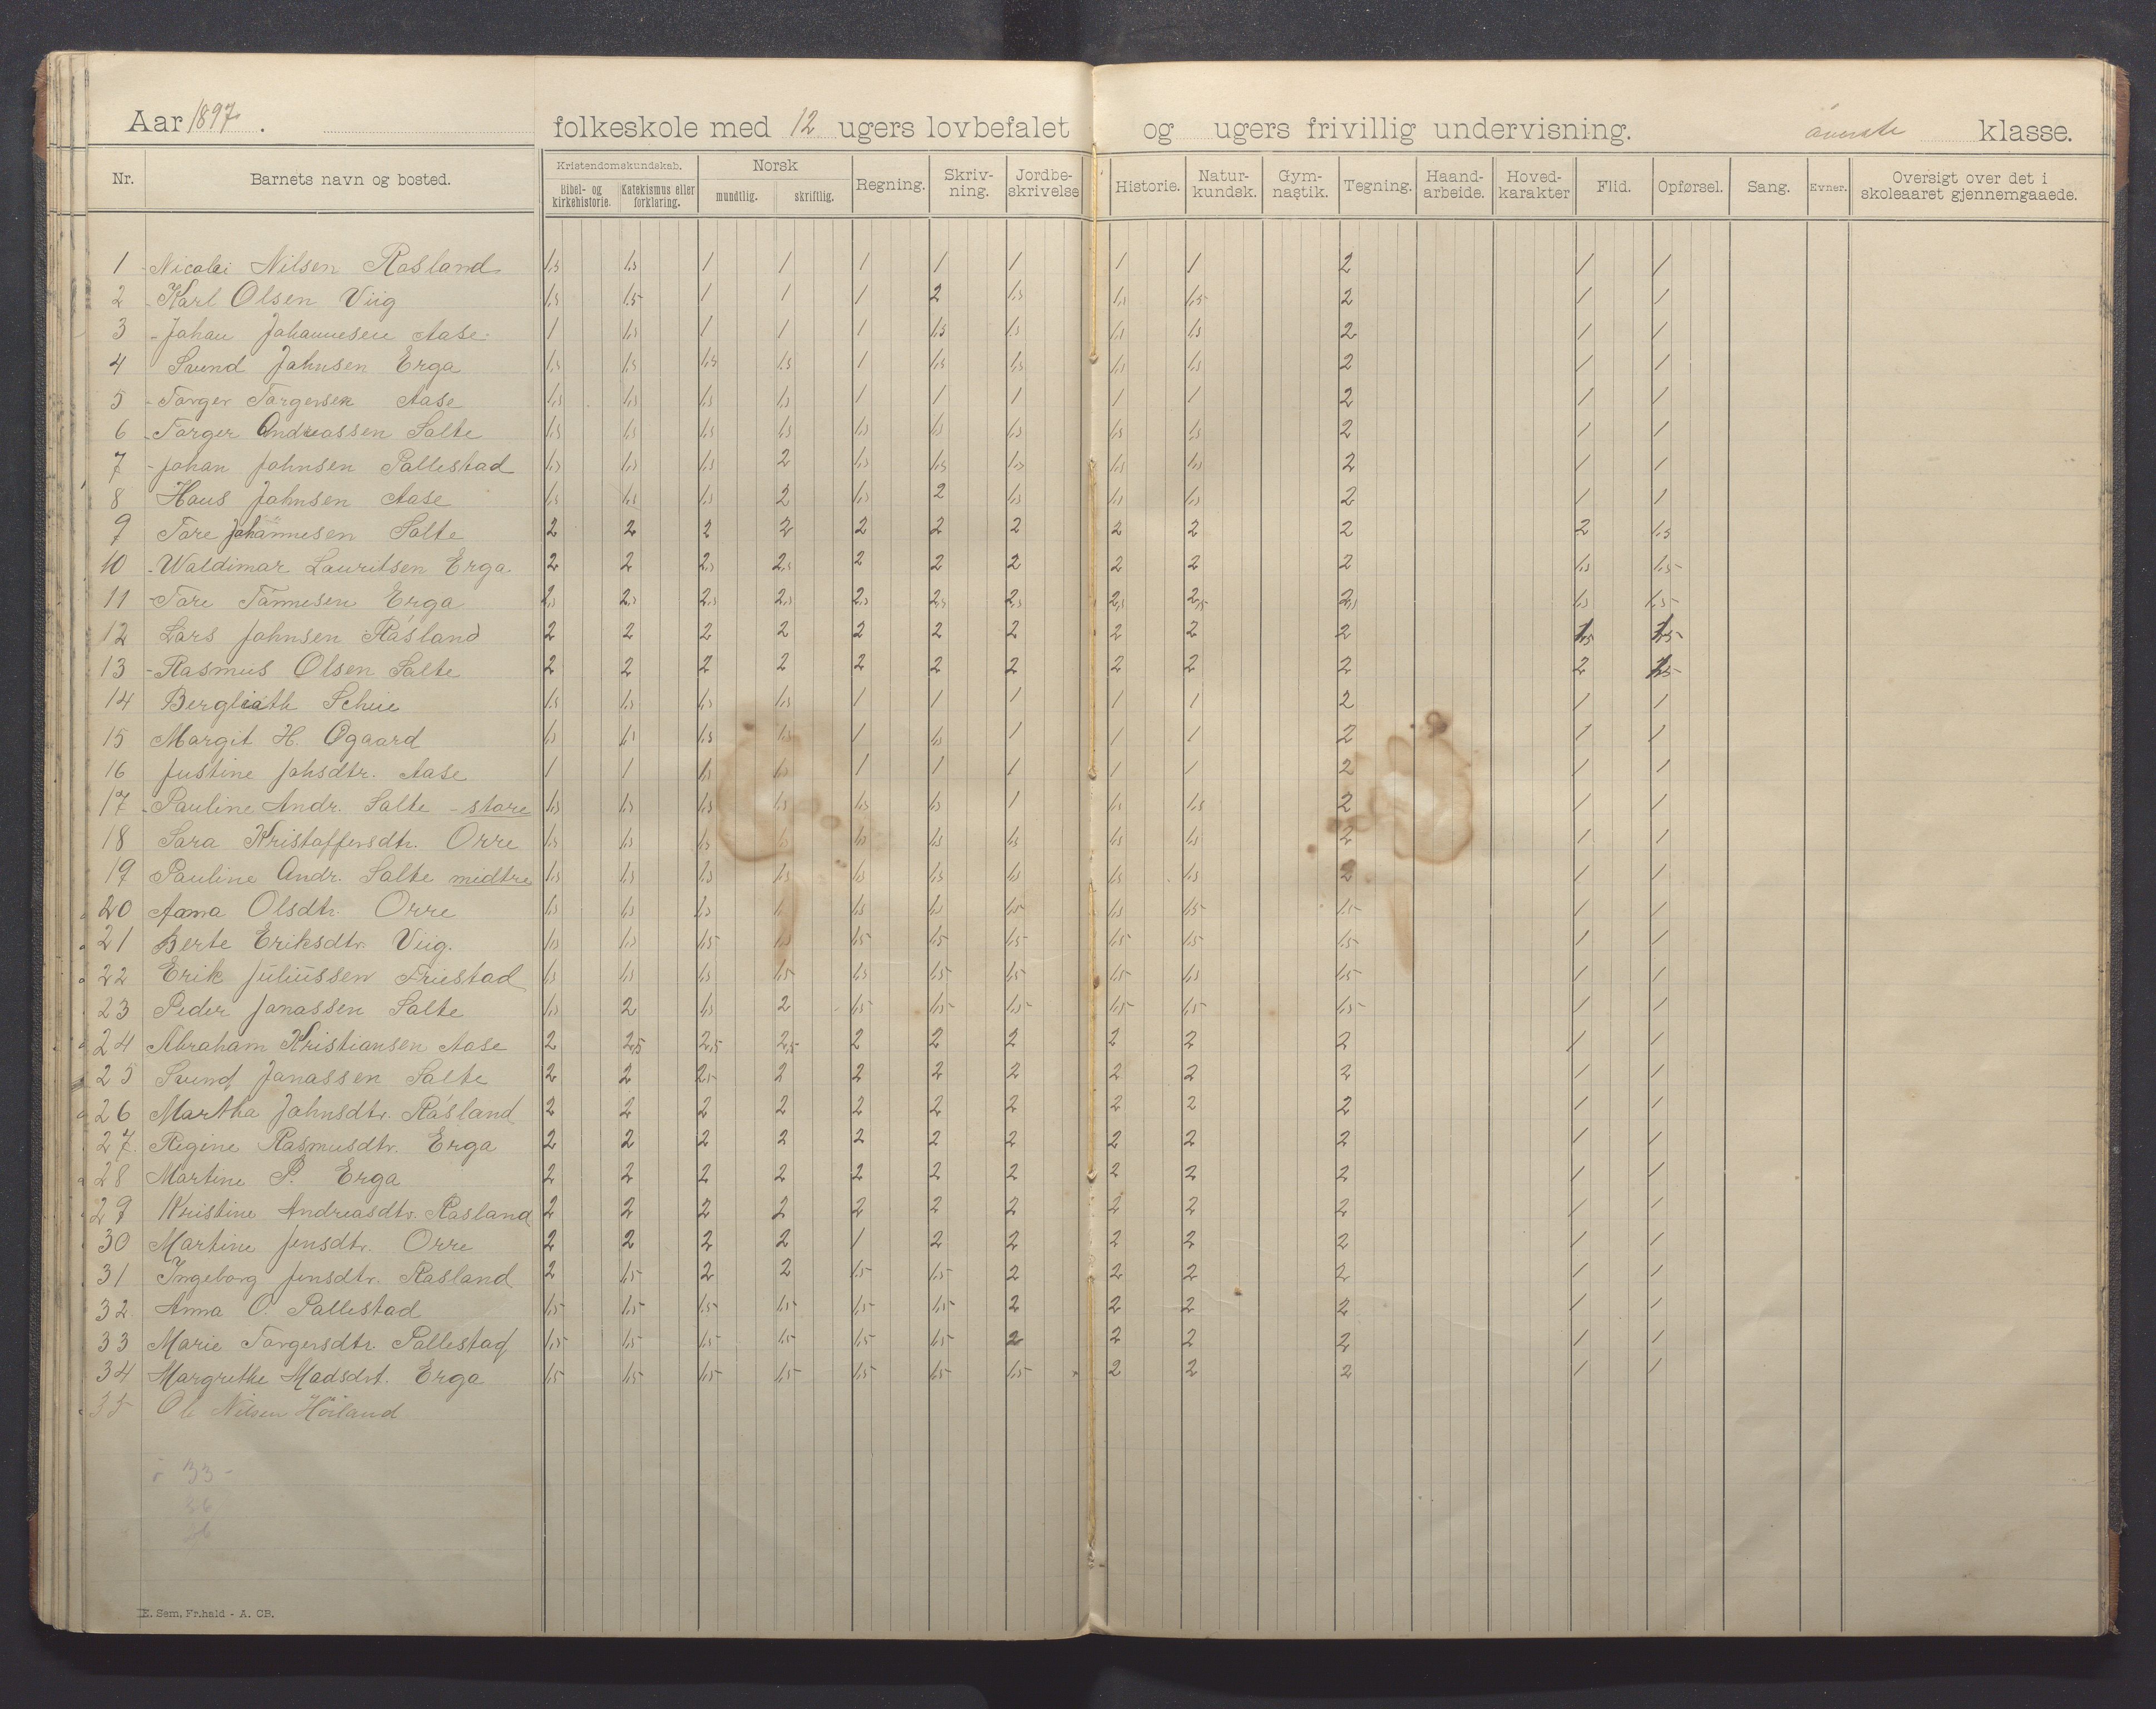 Aar 1897. folkeskole med 12 ugers lovbefalet og ugers frivillig undervisning. øverste klasse.
Nr. Barnets navn og bosted. Kristendomskundskab. Bibel- og kirkehistorie. Katekismus eller forklaring. Norsk mundtlig. skriftlig. Regning. Skriv-ning. Jordbe-skrivelse Historie. Natur-kundsk. Gym-nastik. Tegning. Haand-arbeide. Hoved-karakter Flid. Opførsel. Sang. Evner. Oversigt over det i skoleaaret gjennemgaaede.
1 Nicolai Nilsen Rosland 1,5 1,5 1 1 1 1 1 1 1 2 1 1
2 Karl Olsen Viig 1,5 1,5 1 1 1 2 1,5 1,5 1,5 2 1 1
3 Johan Johannesen Aase 1 1,5 1 1 1 1,5 1,5 1,5 1,5 2 1 1
4 Svend Johnsen Erga 1,5 1,5 1,5 1,5 1 1,5 1,5 1,5 1,5 2 1 1
5 Torger Torgersen Aase 1,5 1,5 1,5 1,5 1 1 1 1 1 2 1 1
6 Torger Andreassen Salte 1,5 1,5 1,5 1,5 1,5 1,5 1,5 1,5 1,5 2 1 1
7 Johan Johnsen Pollestad 1,5 1,5 1,5 2 1,5 1,5 1,5 1,5 1,5 2 1 1
8 Hans Johnsen Aase 1,5 1,5 1,5 2 1,5 2 1,5 1,5 1,5 2 1 1
9 Tore Johannesen Salte 2 2 2 2 2 2 2 2 2 2 2 1,5
10 Waldimar Lauritsen Erga 2 2 2,5 2,5 2 2 2 2 2 2 1,5 1,5
11 Tore Tønnesen Erga 2,5 2,5 2,5 2,5 2,5 2,5 2,5 2,5 2,5 2,5 1,5 1,5
12 Lars Johnsen Rosland 2 2 2 2 2 2 2 2 2 2 1,5 1,5
13 Rasmus Olsen Salte 2 2 2 2 2 2 2 2 2 2 2 1,5
14 Bergliath Schie 1,5 1,5 1,5 1,5 1 1 1 1 1 2 1 1
15 Margit H. Ogaard 1,5 1,5 1,5 1,5 1 1,5 1 1 1 2 1 1
16 Justine Johsdtr. Aase 1 1 1,5 1,5 1 1 1 1 1 2 1 1
17 Pauline Andr. Salte - store 1,5 1,5 1,5 1,5 1,5 1,5 1 1,5 1,5 2 1 1
18 Sara Kristoffersdtr. Orre 1,5 1,5 1,5 1,5 1,5 1,5 1,5 1,5 1,5 2 1 1
19 Pauline Andr. Salte medtre 1,5 1,5 1,5 1,5 1,5 1,5 1,5 1,5 1,5 2 1 1
20 Anna Olsdtr. Orre 1,5 1,5 1,5 1,5 1,5 1,5 1,5 1,5 1,5 1 1
21 Berte Eriksdtr. Viig. 1,5 1,5 1,5 1,5 1,5 1,5 1,5 1,5 1,5 1,5 1 1
22 Erik Juliussen Friestad 1,5 1,5 1,5 1,5 1,5 1,5 1,5 1,5 1,5 1,5 1 1
23 Peder Jonassen Salte 1,5 2 1,5 2 1,5 1,5 1,5 1,5 1,5 1,5 1 1
24 Abraham Kristiansen Aase 2 2,5 2,5 2,5 2 2 2 2 2 2 1 1
25 Svend Jonassen Salte 2 2 2,5 2 2 2 2 2 2 2 1 1
26 Martha Johnsdtr. Rosland 2 2 2 2 2 2 2 2 2 2 1 1
27. Regine Rasmusdtr. Erga 2 2 2 2 2 2 2 2 2 2 1 1
28 Martine P. Erga 2 2 2 2 2 2 2 2 2 2 1 1
29 Kristine Andreasdtr. Rosland 2 2 2 2 2 2 2 2 2 2 1 1
30 Martine Jensdtr. Orre 2 2 2 2 1 2 2 2 2 2 1 1
31 Ingeborg Jensdtr. Rosland 2 1,5 2 2 1,5 1,5 2 2 2 2 1 1
32. Anna O. Pollestad 1,5 1,5 1,5 1,5 1,5 1,5 2 2 2 2 1 1
33 Marie Torgersdtr. Pollestad 1,5 1,5 1,5 1,5 1,5 1,5 2 2 2 2 1 1
34 Margrethe Madsdrt. Erga 1,5 1,5 1,5 1,5 1,5 1,5 1,5 2 2 2 1 1
35 Ole Nilsen Høiland
33
E. Sem, Fr.hald - A. CB.